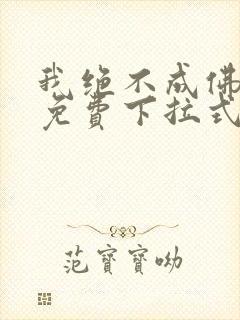 我绝不成佛
免費下拉式
范寶寶呦